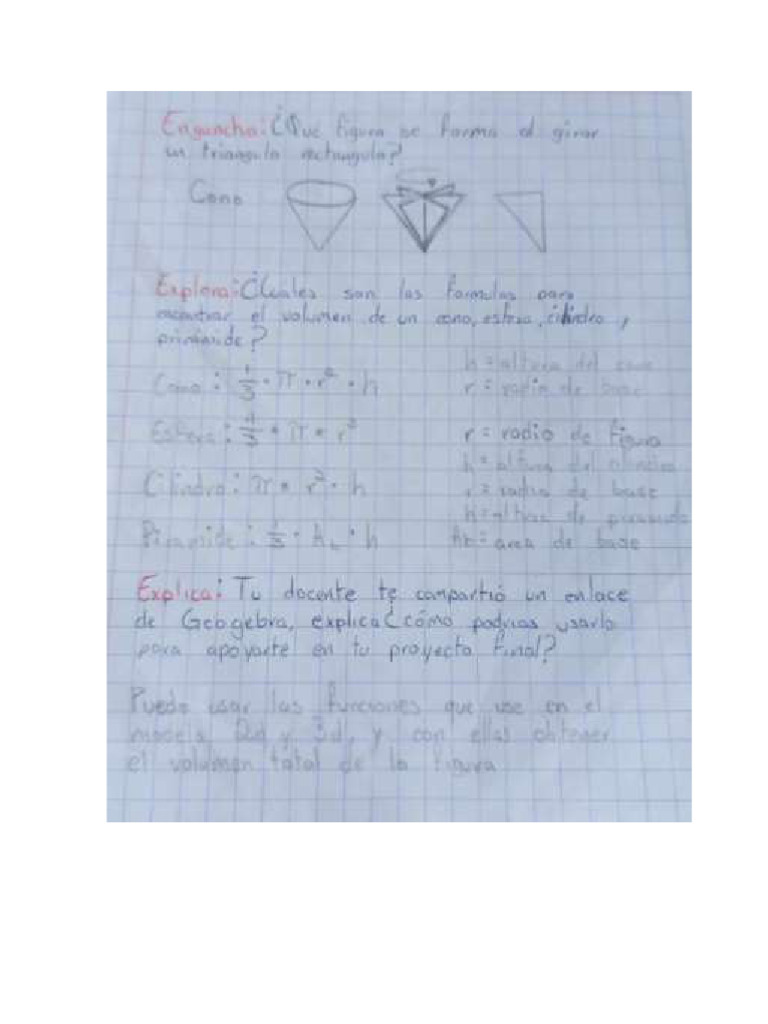 Enguncha: ¿Que figura se forma al girar
un triangulo rectangulo?
Cono
Explora: ¿Cuales son las formulas para
encontrar el volumen de un cono, esfera, cilindro,
piramide?
h = altura del cono
Cono: 1/3 • π • r² • h r = radio de base
Esfera: 4/3 • π • r³ r = radio de figura
h = altura del cilindro
Cilindro: π • r² • h r = radio de base
h = altura de piramide
Piramide: 1/3 • Ab • h Ab = area de base
Explica: Tu docente te compartió un enlace
de Geogebra, explica ¿cómo podrias usarlo
para apoyarte en tu proyecto final?
Puedo usar las funciones que use en el
modelo 2d y 3d, y con ellas obtener
el volumen total de la figura